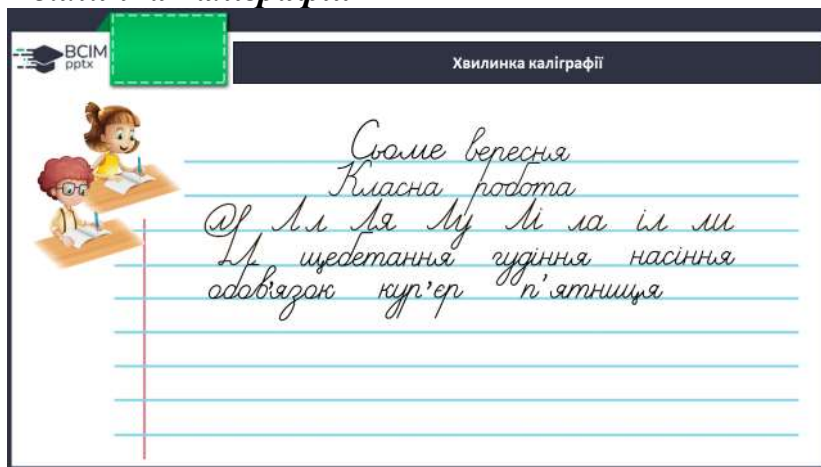 BCIM
pptx
Хвилинка каліграфії
Сьоме вересня
Класна робота
Лл Ля Лу Лі ла іл ли
щебетання гудіння насіння
обов'язок кур'єр п'ятниця